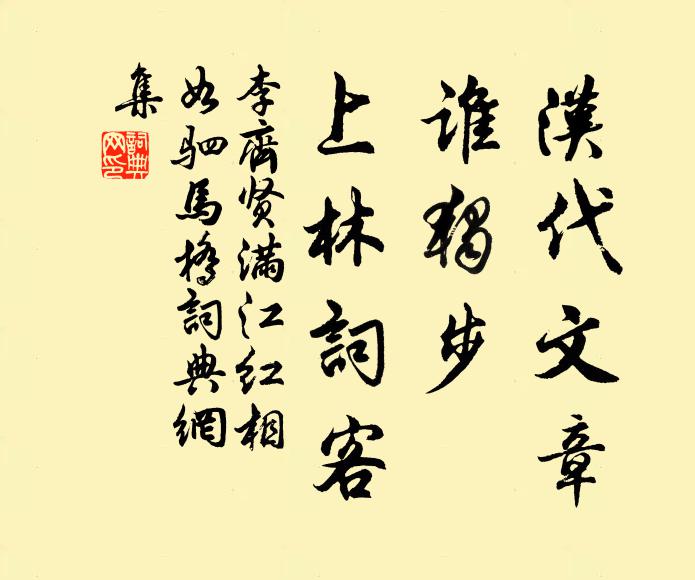 漢代文章
誰獨步
上林詞客
李齊贤滿江红相
如驷馬橋詞典網
集
詞典
网印